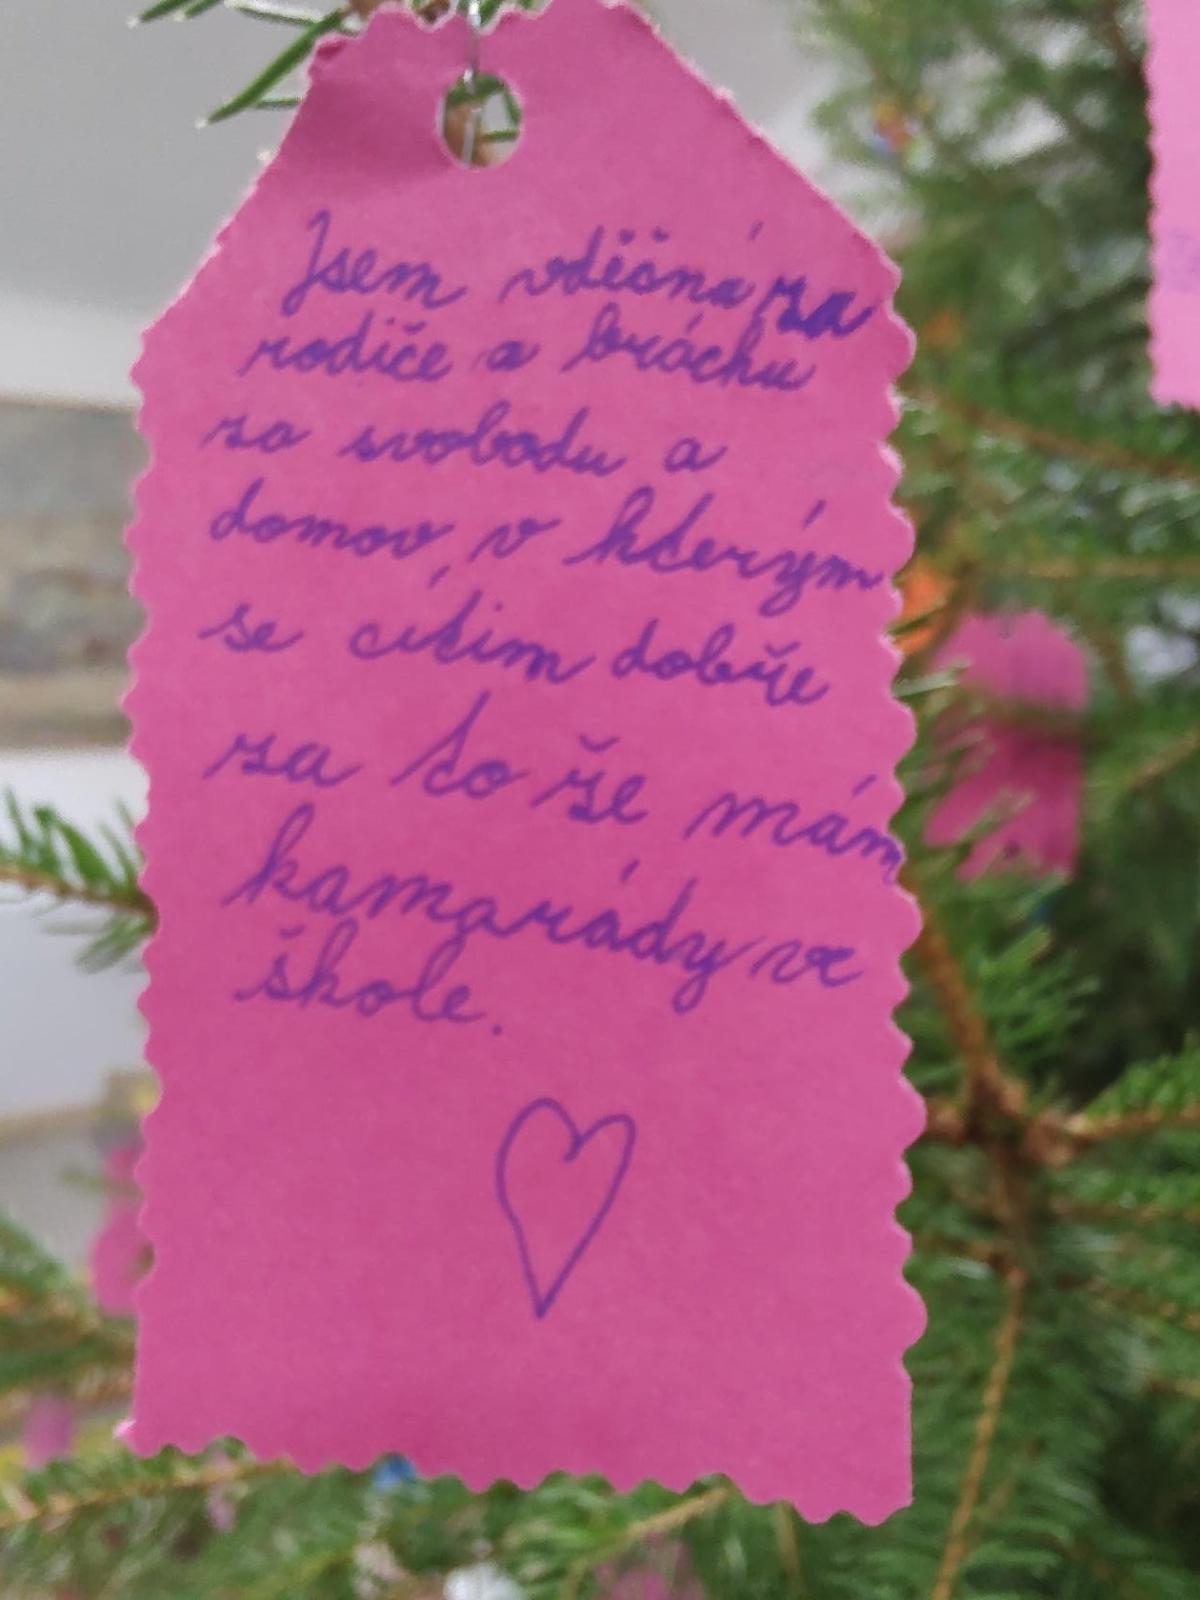 Jsem vděčná za
rodiče a bráchu
za svobodu a
domov, v kterým
se cítim dobře
za to že mám
kamarády ve
škole.